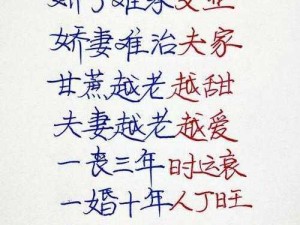 娇妻难治夫家
甘蔗越老越甜
夫妻越老越爱
一丧三年时运衰
一婚十年人丁旺